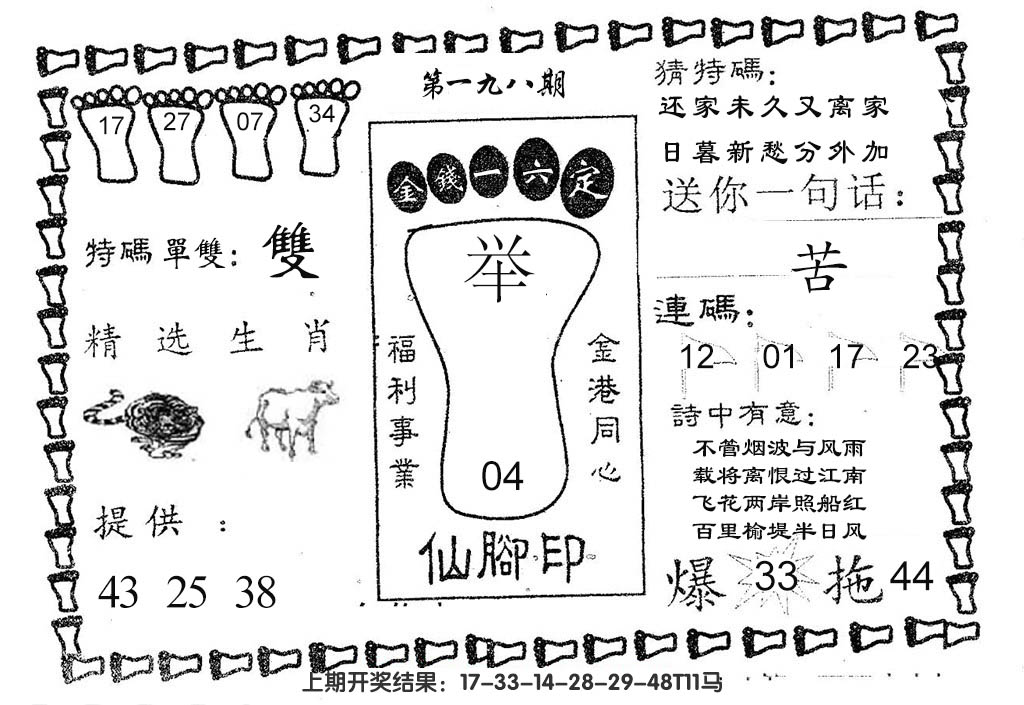 第一九八期
17 27 07 34
特碼單雙：雙
精选生肖
提供：
43 25 38
金錢一六定
举
福利事業
金港同心
04
仙腳印
猜特碼：
还家未久又离家
日暮新愁分外加
送你一句话：
苦
連碼：
12 01 17 23
詩中有意：
不管烟波与风雨
载将离恨过江南
飞花两岸照船红
百里榆堤半日风
爆 33 拖 44
上期开奖结果：17-33-14-28-29-48T11马